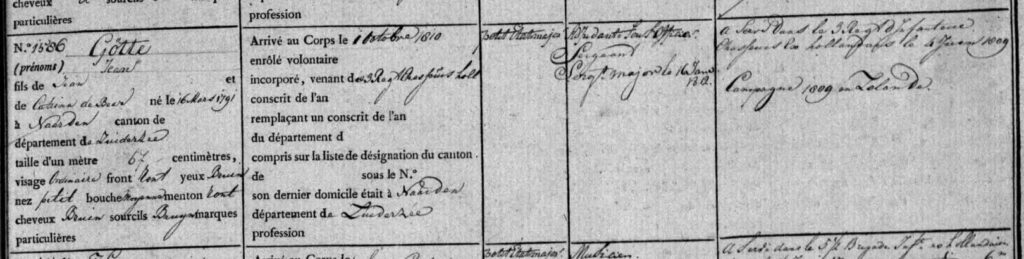 cheveux sourcils
particulières
profession
N.º 1586 Götte
(prénoms) Jean
fils de Jean et
de Catrina de Beer né le 16 Mars 1791
à Naarden canton de
département de Zuiderzée
taille d'un mètre 67 centimètres,
visage Ordinaire front Ront yeux Bruin
nez petit bouche moyenne menton Ront
cheveux Bruin sourcils Bruyn marques
particulières
Arrivé au Corps le 1 Octobre 1810
enrôlé volontaire
incorporé, venant de 3 Regt Chasseurs holl
conscrit de l'an
remplaçant un conscrit de l'an
du département d
compris sur la liste de désignation du canton
de sous le N.º
son dernier domicile était à Naarden
département de Zuiderzée
profession
petit Etatmajor
Adudant Sous Officier
Sergeant
Sergt major le 16 Janv
A Servi dans le 3 Regt d'Infanterie
Chasseurs hollandais le 1809
Campagne 1809 en Zelande.
Arrivé au Corps le
petit Etatmajor
Musicien
A Servi dans le 5 Brigade Inft